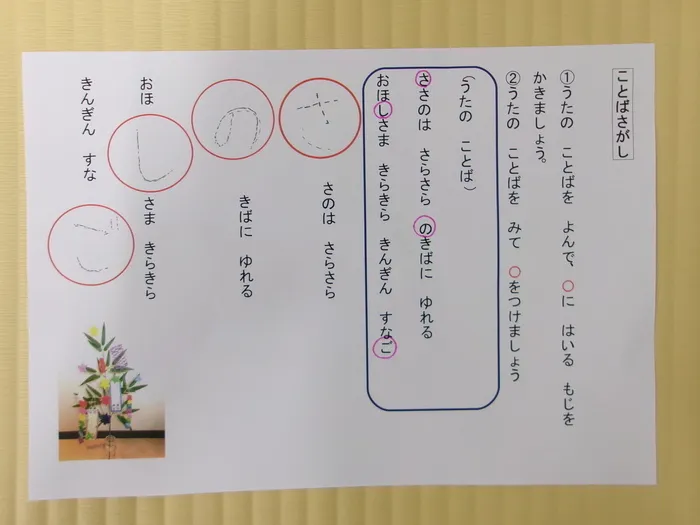 ことばさがし
①うたの ことばを よんで、○に はいる もじを
かきましょう。
②うたの ことばを みて ○をつけましょう
(うたの ことば)
ささのは さらさら のきばに ゆれる
おほしさま きらきら きんぎん すなご
さ さのは さらさら
の きばに ゆれる
おほ し さま きらきら
きんぎん すな ご